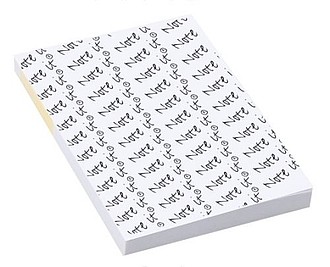 Note it® Note it® Note it® Note it®
Note it® Note it® Note it® Note it®
Note it® Note it® Note it® Note it®
Note it® Note it® Note it® Note it®
Note it® Note it® Note it® Note it®
Note it® Note it® Note it® Note it®
Note it® Note it® Note it® Note it®
Note it® Note it® Note it® Note it®
Note it® Note it® Note it® Note it®